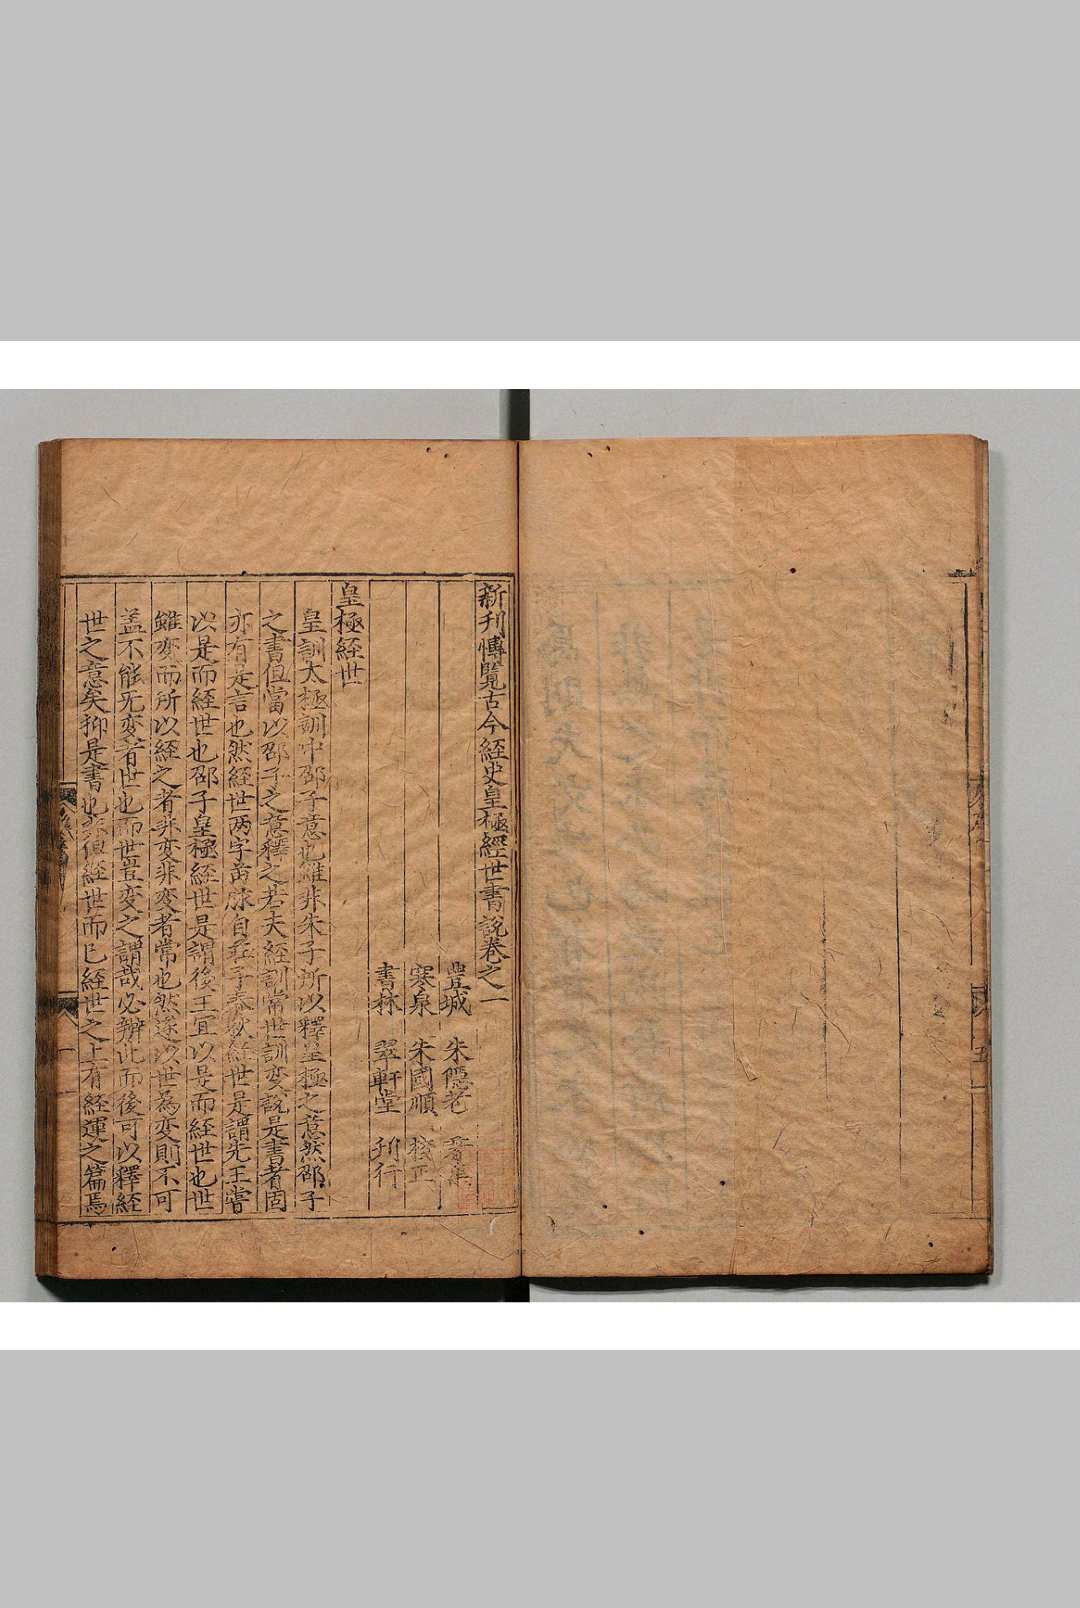 新刊博覽古今經史皇極經世書說卷之一
豐城 朱隱老 集
寒泉 朱國順 校正
書林 翠軒堂 刊行
皇極經世
皇訓大極訓中邵子意也雖非朱子所以釋皇極之意然邵子
之書但當以邵子之意釋之若夫經訓常世訓变說是書者固
亦有是言也然經世两字苗脉自莊子春秋經世是謂先王嘗
以是而經世也邵子皇極經世是謂後王宜以是而經世也世
雖变而所以經之者非变非变者常也然遂以世為变則不可
盖不能无变者世也而世豈变之謂哉必辨此而後可以釋經
世之意矣抑是書也非但經世而已經世之上有經運之篇焉
一